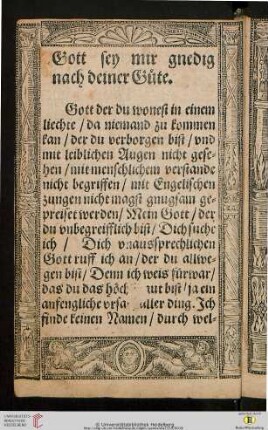 Gott sey mir gnedig
nach deiner Güte.
Gott der du wonest in einem
liechte / da niemand zu kommen
kan / der du verborgen bist / vnd
mit leiblichen Augen nicht gese-
hen / mit menschlichem verstande
nicht begriffen / mit Engelischen
zungen nicht magst gnugsam ge-
preiset werden / Mein Gott / der
du vnbegreifflich bist / Dich suche
ich / Dich vnaussprechlichen
Gott ruff ich an / der du allwe-
gen bist / Denn ich weis fürwar /
das du das höch gut bist / ja ein
anfengliche vrsa aller ding. Ich
finde keinen Namen / durch wel-
© Universitätsbibliothek Heidelberg